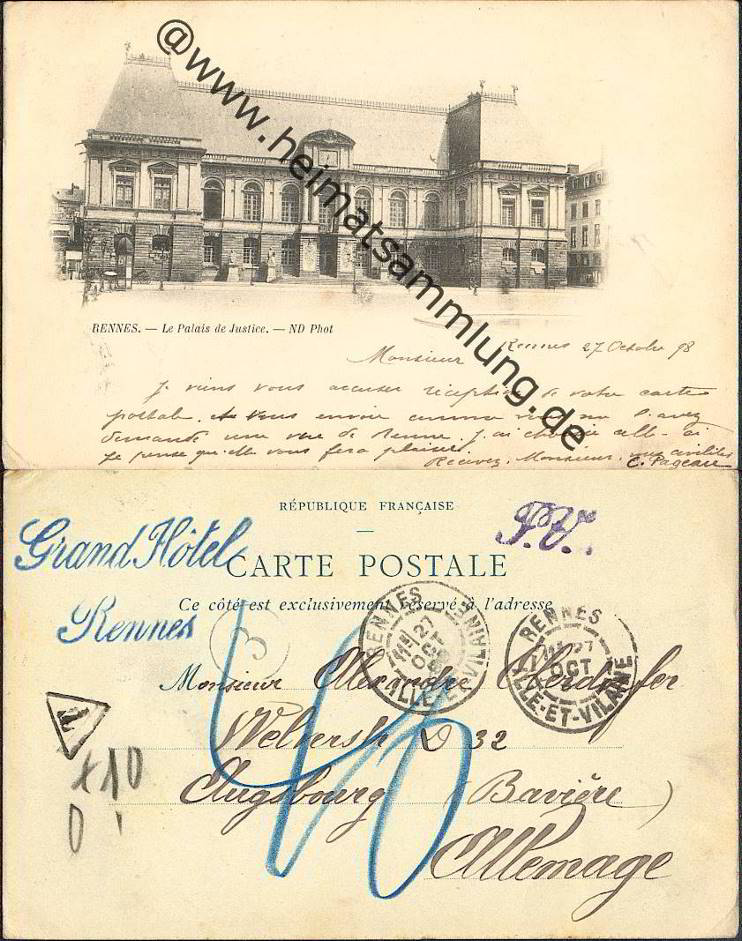 @www.heimatsammlung.de
RENNES. — Le Palais de Justice. — ND Phot
Rennes 27 Octobre 98
Monsieur
Je viens vous accuser réception de votre carte
postale. Je vous envoie comme vous me l'avez
demandé une vue de Rennes. J'ai choisie celle-ci
je pense qu'elle vous fera plaisir
Recevez, Monsieur, mes civilités
C. Pageau
RÉPUBLIQUE FRANÇAISE
P.V.
Grand Hôtel
CARTE POSTALE
Ce côté est exclusivement réservé à l'adresse
Rennes
RENNES
27
OCT
ILLE-ET-VILAINE
RENNES
27
OCT
ILLE-ET-VILAINE
Monsieur Alexandre
T
32
x10
Augsbourg (Bavière)
Allemage